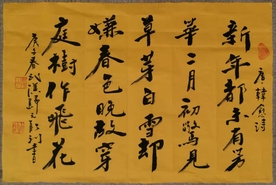 唐韓愈詩
新年都未有芳
華二月初驚見
草芽白雪却
嫌春色晚故穿
庭樹作飛花
庚子春武漢 書